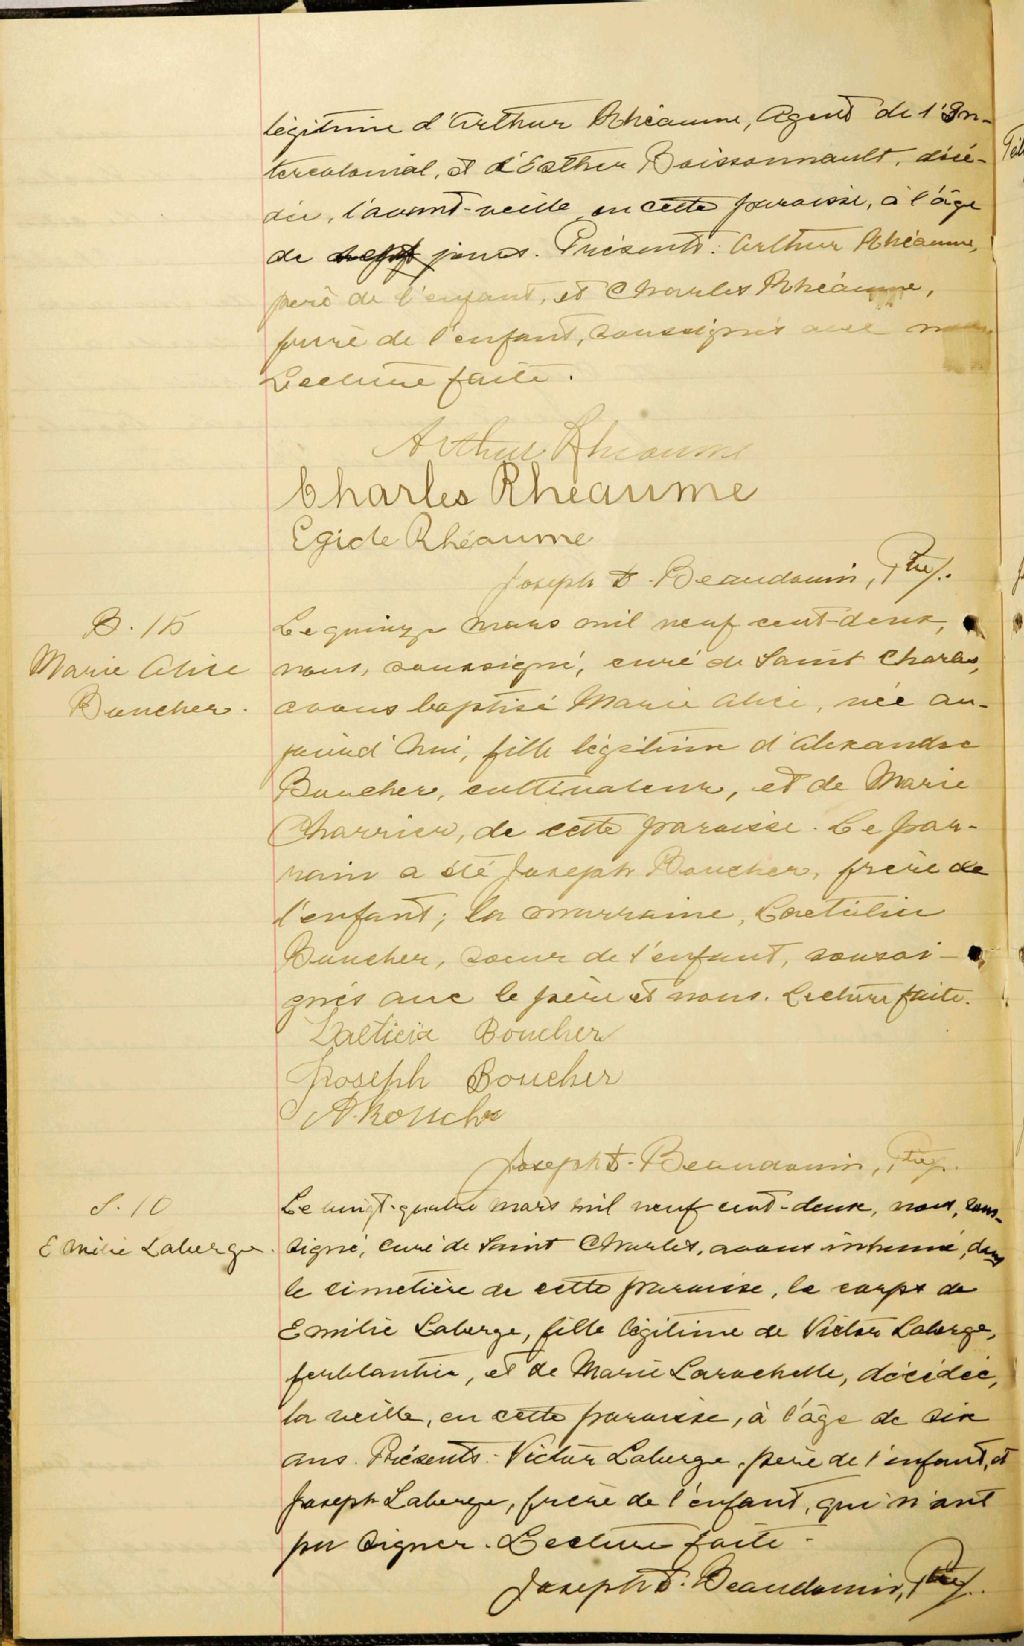 légitime d'Arthur Rhéaume, Agent de l'In-
tercolonial, et d'Esther Boissonnault, décé-
dée, l'avant-veille en cette paroisse, à l'âge
de sept jours. Présents: Arthur Rhéaume,
père de l'enfant, et Charles Rhéaume,
frère de l'enfant, soussignés avec nous
Lecture faite.
Arthur Rhéaume
Charles Rheaume
Egide Rhéaume
Joseph D. Beaudouin, Ptre.
B. 15
Marie Alice
Boucher.
Le quinze mars mil neuf cent-deux,
nous, soussigné, curé de Saint Charles,
avons baptisé Marie Alice, née au-
jourd'hui, fille légitime d'Alexandre
Boucher, cultivateur, et de Marie
Charrier, de cette paroisse. Le par-
rain a été Joseph Boucher, frère de
l'enfant; la marraine, Laetitia
Boucher, soeur de l'enfant, soussi-
gnés avec le père et nous. Lecture faite.
Laeticia Boucher
Joseph Boucher
A. Boucher
Joseph D. Beaudouin, Ptre.
S. 10
Emilie Laberge.
Le vingt-quatre mars mil neuf cent-deux, nous, sous-
signé, curé de Saint Charles, avons inhumé, dans
le cimetière de cette paroisse, le corps de
Emilie Laberge, fille légitime de Victor Laberge,
ferblantier, et de Marie Larochelle, décédée,
la veille, en cette paroisse, à l'âge de six
ans. Présents: Victor Laberge, père de l'enfant, et
Joseph Laberge, frère de l'enfant, qui n'ont
pu signer. Lecture faite.
Joseph D. Beaudouin, Ptre.